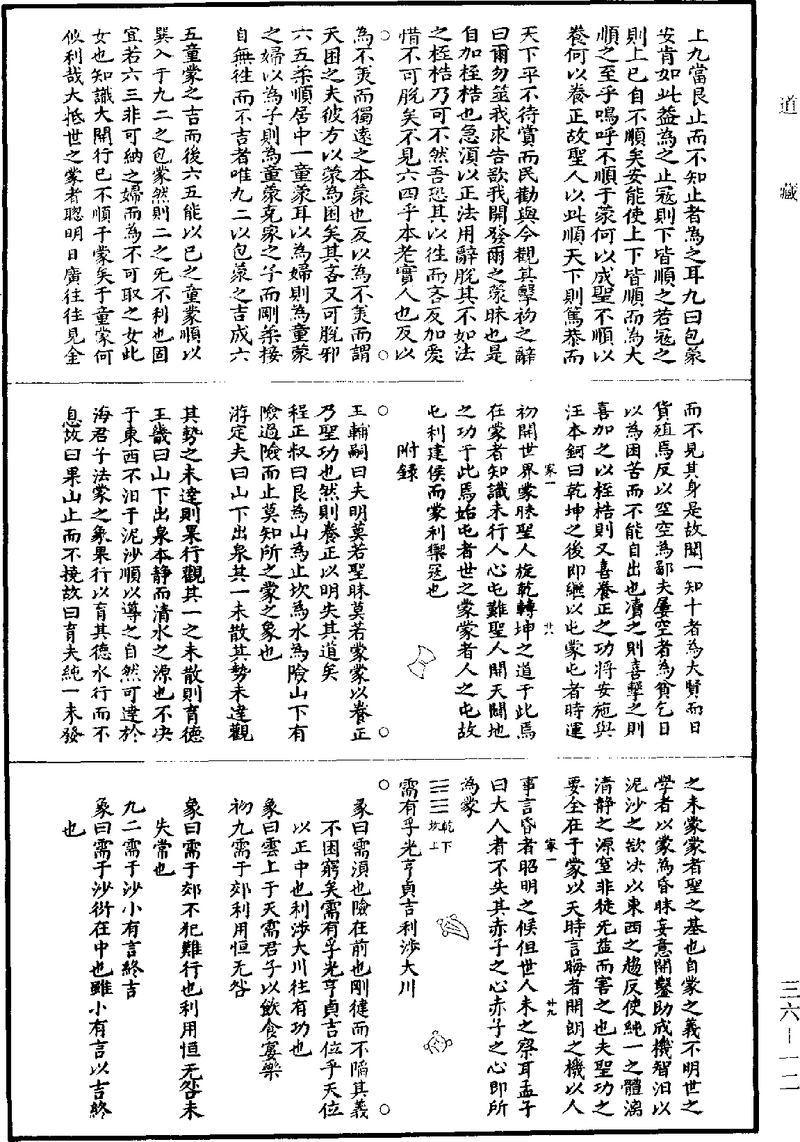 道藏
三六—一二
上九當艮止而不知止者為之耳九曰包蒙
安肯如此益為之止寇則下皆順之若寇之
則上已自不順矣安能使上下皆順而為大
順之至乎嗚呼不順于蒙何以成聖不順以
養何以養正故聖人以此順天下則篤恭而
天下平不待賞而民勸與今觀其擊初之辭
曰爾勿筮我求告欲我開發爾之蒙昧也是
自加桎梏也急須以正法用辭脫其不如法
之桎梏乃可不然吾恐其以往而吝反加愛
惜不可脫矣不見六四乎本老實人也反以
為不英而獨遠之本蒙也反以為不英而謂
天困之夫彼方以蒙為困矣其吝又可脫邪
六五柔順居中一童蒙耳以為婦則為童蒙
之婦以為子則為童蒙克家之子而剛柔接
自無往而不吉者唯九二以包蒙之吉成六
五童蒙之吉而後六五能以已之童蒙順以
巽入于九二之包蒙然則二之无不利也固
宜若六三非可納之婦而為不可取之女此
女也知識大開行已不順于蒙矣于童蒙何
似利哉大抵世之蒙者聰明日廣往往見金
而不見其身是故聞一知十者為大賢而日
貨殖焉反以空空為鄙夫屢空者為貧乞日
以為困苦而不能自出也凟之則喜擊之則
喜加之以桎梏則又喜養正之功將安施與
汪本鈳曰乾坤之後即繼以屯蒙屯者時運
初開世界蒙昧聖人旋乾轉坤之道于此焉
在蒙者知識未行人心屯難聖人開天闢地
之功于此焉始屯者世之蒙蒙者人之屯故
屯利建侯而蒙利禦寇也
附錄
王輔嗣曰夫明莫若聖昧莫若蒙蒙以養正
乃聖功也然則養正以明失其道矣
程正叔曰艮為山為止坎為水為險山下有
險遇險而止莫知所之蒙之象也
游定夫曰山下出泉其一未散其勢未達觀
其勢之未達則果行觀其一之未散則育德
王畿曰山下出泉本靜而清水之源也不决
于東西不汩于泥沙順以導之自然可達於
海君子法蒙之象果行以育其德水行而不
息故曰果山止而不撓故曰育夫純一未發
之未蒙蒙者聖之基也自蒙之義不明世之
學者以蒙為昏昧妄意開鑿助成機智汩以
泥沙之欲决以東西之趨反使純一之體漓
清靜之源窒非徒无益而害之也夫聖功之
要全在于蒙以天時言晦者開朗之機以人
事言昏者昭明之候但世人未之察耳孟子
曰大人者不失其赤子之心赤子之心即所
為蒙
乾下
坎上
需有孚光亨貞吉利涉大川
彖曰需須也險在前也剛健而不陷其義
不困窮矣需有孚光亨貞吉位乎天位
以正中也利涉大川往有功也
象曰雲上于天需君子以飲食宴樂
初九需于郊利用恒无咎
象曰需于郊不犯難行也利用恒无咎未
失常也
九二需于沙小有言終吉
象曰需于沙衍在中也雖小有言以吉終
也